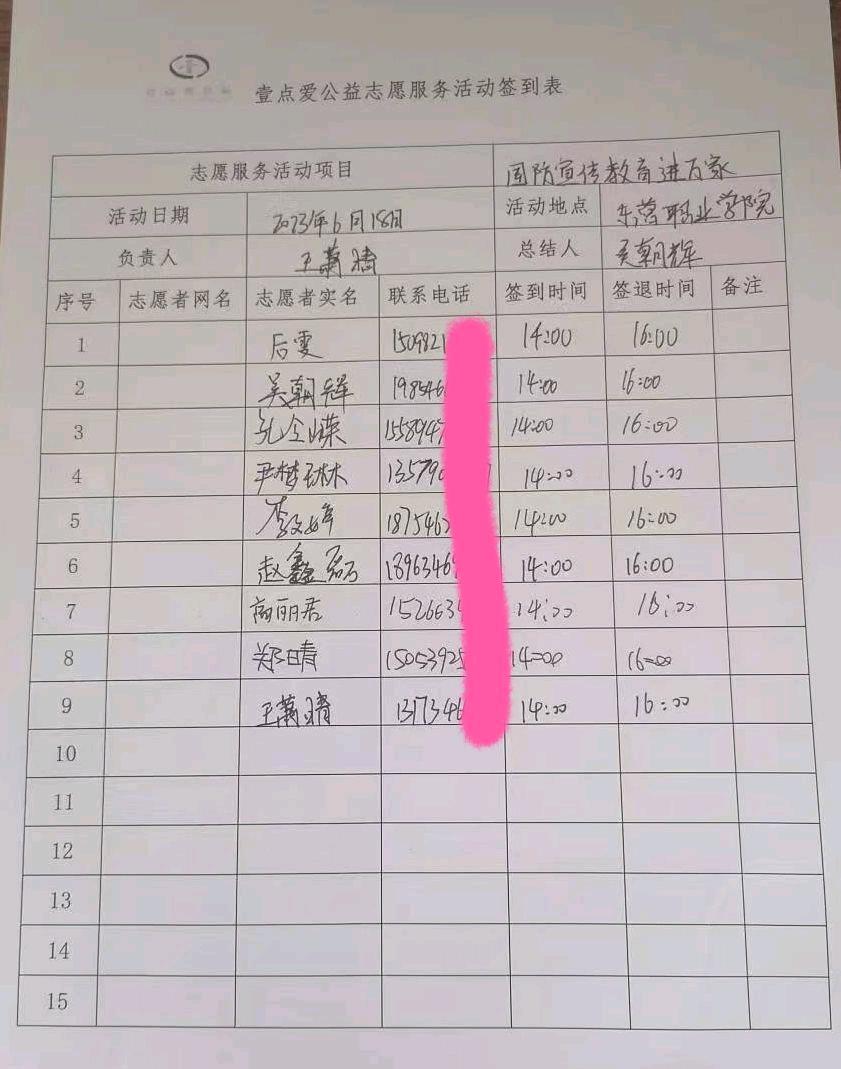 壹点爱公益志愿服务活动签到表
志愿服务活动项目 国防宣传教育进万家
活动日期 2023年6月18日 活动地点 东营职业学院
负责人 王萧晴 总结人 吴朝辉
序号 志愿者网名 志愿者实名 联系电话 签到时间 签退时间 备注
1 后雯 1509821 14:00 16:00
2 吴朝辉 198546 14:00 16:00
3 孔令嵘 1558947 14:00 16:00
4 尹梦琳 135790 14:00 16:00
5 李文婷 187546 14:00 16:00
6 赵鑫磊 1896346 14:00 16:00
7 高丽君 152663 14:00 16:00
8 郑晴 15053925 14:00 16:00
9 王萧晴 1317346 14:00 16:00
10
11
12
13
14
15